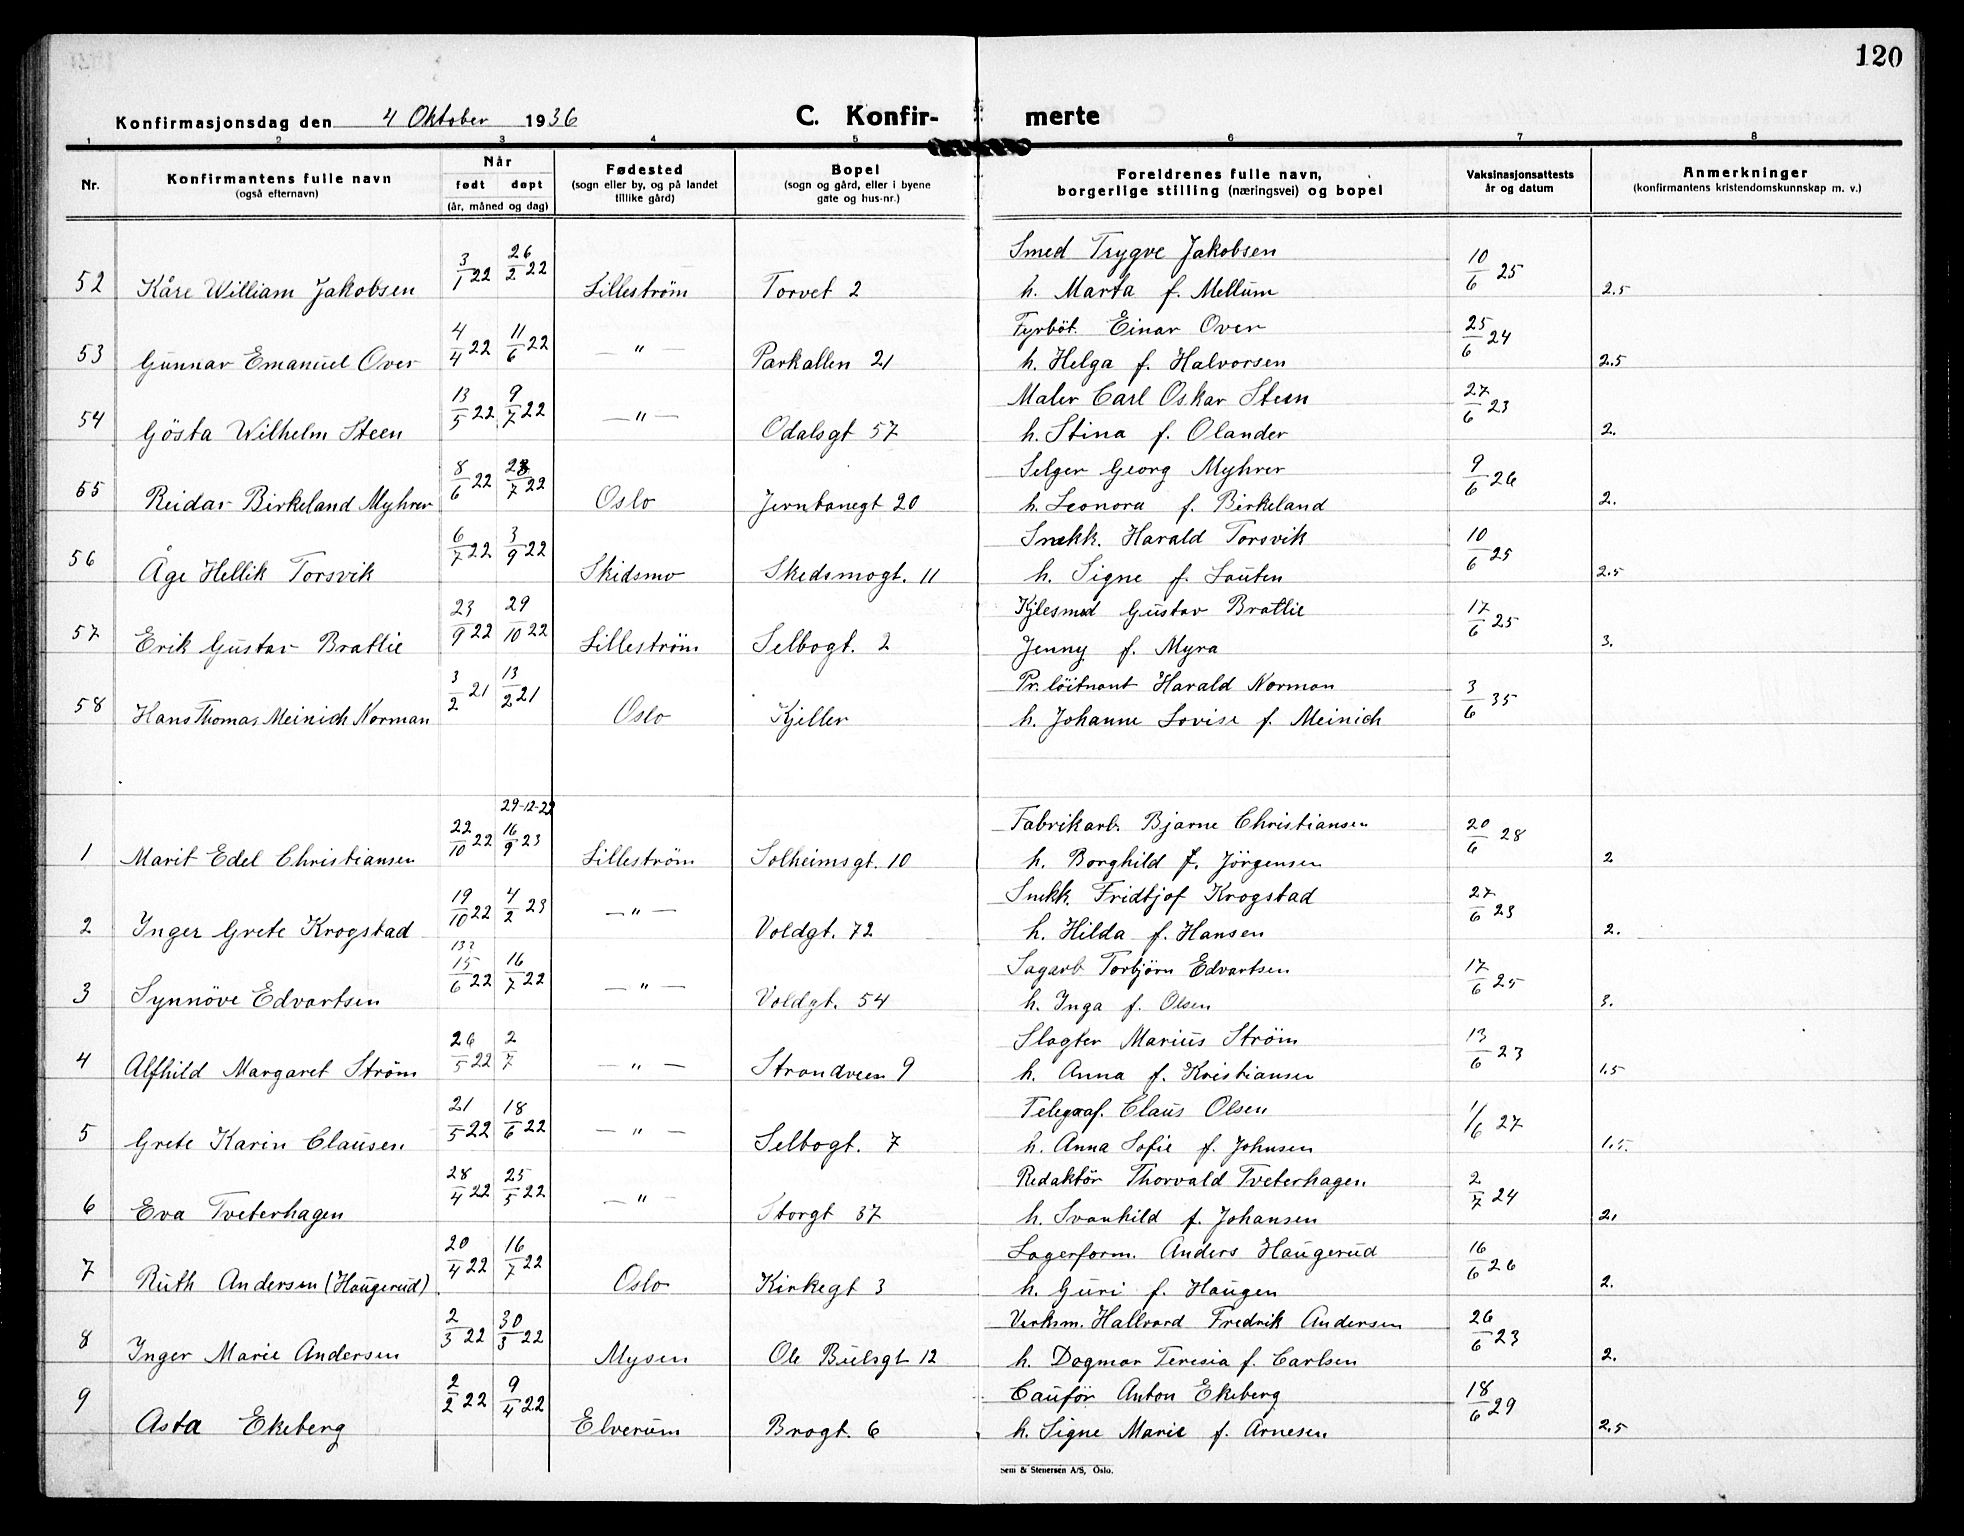 120
Konfirmasjonsdag den 4 Oktober 1936 C. Konfir- merte
1 2 3 4 5 6 7 8
Nr. Konfirmantens fulle navn (også efternavn) Når født døpt (år, måned og dag) Fødested (sogn eller by, og på landet tillike gård) Bopel (sogn og gård, eller i byene gate og hus-nr.) Foreldrenes fulle navn, borgerlige stilling (næringsvei) og bopel Vaksinasjonsattests år og datum Anmerkninger (konfirmantens kristendomskunnskap m. v.)
52 Kåre William Jakobsen 3/1 22 26/2 22 Lilleström Torvet 2 Smed Trygve Jakobsen 10/6 25
h. Marta f. Mellum 2.5
53 Gunnar Emanuel Over 4/4 22 11/6 22 — " — Parkallen 21 Fyrböt. Einar Over 25/6 24
h. Helga f. Halvorsen 2.5
54 Gösta Wilhelm Steen 13/5 22 9/7 22 — " — Odalsgt 57 Maler Carl Oskar Steen 27/6 23
h. Stina f. Olander 2.
55 Reidar Birkeland Myhrer 8/6 22 23/7 22 Oslo Jernbanegt 20 Selger Georg Myhrer 9/6 26
h. Leonora f. Birkeland 2.
56 Åge Hellik Torsvik 6/7 22 3/9 22 Skidsmo Skedsmogt. 11 Snekk. Harald Torsvik 10/6 25
h. Signe f. Lauten 2.5
57 Erik Gustav Bratlie 23/9 22 29/10 22 Lilleström Selbogt. 2 Kjlesmed Gustav Bratlie 17/6 25
Jenny f. Myra 3.
58 Hans Thomas Meinich Norman 3/2 21 13/2 21 Oslo Kjeller Pr. löitnant Harald Norman 3/6 35
h. Johanne Lovise f. Meinich
29-12-22
1 Marit Edel Christiansen 22/10 22 16/9 23 Lilleström Solheimsgt. 10 Fabrikarb. Bjarne Christiansen 20/6 28
h. Borghild f. Jörgensen 2
2 Inger Grete Krogstad 19/10 22 4/2 23 — " — Voldgt. 72 Snekk. Fridtjof Krogstad 27/6 23
h. Hilda f. Hansen 2.
13?
3 Synnöve Edvartsen 15/6 22 16/7 22 — " — Voldgt. 54 Sagarb Torbjörn Edvartsen 17/6 25
h. Inga f. Olsen 3.
4 Alfhild Margaret Ström 26/5 22 2/7 — " — Strandveien 9 Slagter Marius Ström 13/6 23
h. Anna f. Kristiansen 1.5
5 Grete Karin Clausen 21/5 22 18/6 22 — " — Selbogt. 7 Telegraf. Claus Olsen 1/6 27
h. Anna Sofie f. Johnsen 1.5.
6 Eva Tveterhagen 28/4 22 25/5 22 — " — Storgt 37 Redaktör Thorvald Tveterhagen 2/7 24
h. Svanhild f. Johansen 2.
7 Ruth Andersen (Haugerud) 20/4 22 16/7 22 Oslo Kirkegt 3 Lagerform. Anders Haugerud 16/6 26
h. Guri f. Haugen 2.
8 Inger Marie Andersen 2/3 22 30/3 22 Mysen Ole Bulsgt 12 Verksm. Hallvard Fredrik Andersen 26/6 23
h. Dagmar Teresia f. Carlsen 2.
9 Asta Ekeberg 2/2 22 9/4 22 Elverum Brogt. 6 Cauför Anton Ekeberg 18/6 29
h. Signe Marie f. Arnesen 2.5
Sem & Stenersen A/S, Oslo.